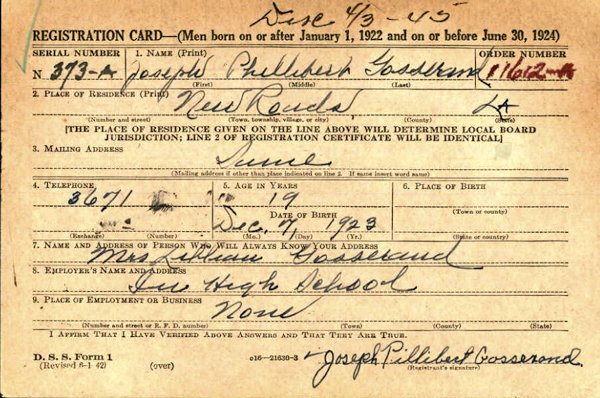 Disc 4/3-45
REGISTRATION CARD—(Men born on or after January 1, 1922 and on or before June 30, 1924)
SERIAL NUMBER 1. NAME (Print) ORDER NUMBER
N. 373-A Joseph Phillibert Gosserand 11612-A
(First) (Middle) (Last)
2. PLACE OF RESIDENCE (Print)
New Roads, LA
(Number and street) (Town, township, village, or city) (County) (State)
[THE PLACE OF RESIDENCE GIVEN ON THE LINE ABOVE WILL DETERMINE LOCAL BOARD
JURISDICTION; LINE 2 OF REGISTRATION CERTIFICATE WILL BE IDENTICAL]
3. MAILING ADDRESS
Same
(Mailing address if other than place indicated on line 2. If same insert word same)
4. TELEPHONE 5. AGE IN YEARS 6. PLACE OF BIRTH
3671 19
DATE OF BIRTH (Town or county)
Dec. 7, 1923
(Exchange) (Number) (Mo.) (Day) (Yr.) (State or country)
7. NAME AND ADDRESS OF PERSON WHO WILL ALWAYS KNOW YOUR ADDRESS
Mrs. Lillian Gosserand
8. EMPLOYER'S NAME AND ADDRESS
In High School
9. PLACE OF EMPLOYMENT OR BUSINESS
None
(Number and street or R. F. D. number) (Town) (County) (State)
I AFFIRM THAT I HAVE VERIFIED ABOVE ANSWERS AND THAT THEY ARE TRUE.
D. S. S. Form 1
(Revised 6-1-42) (over) c16—21630-3 Joseph Pillibert Gosserand.
(Registrant's signature)